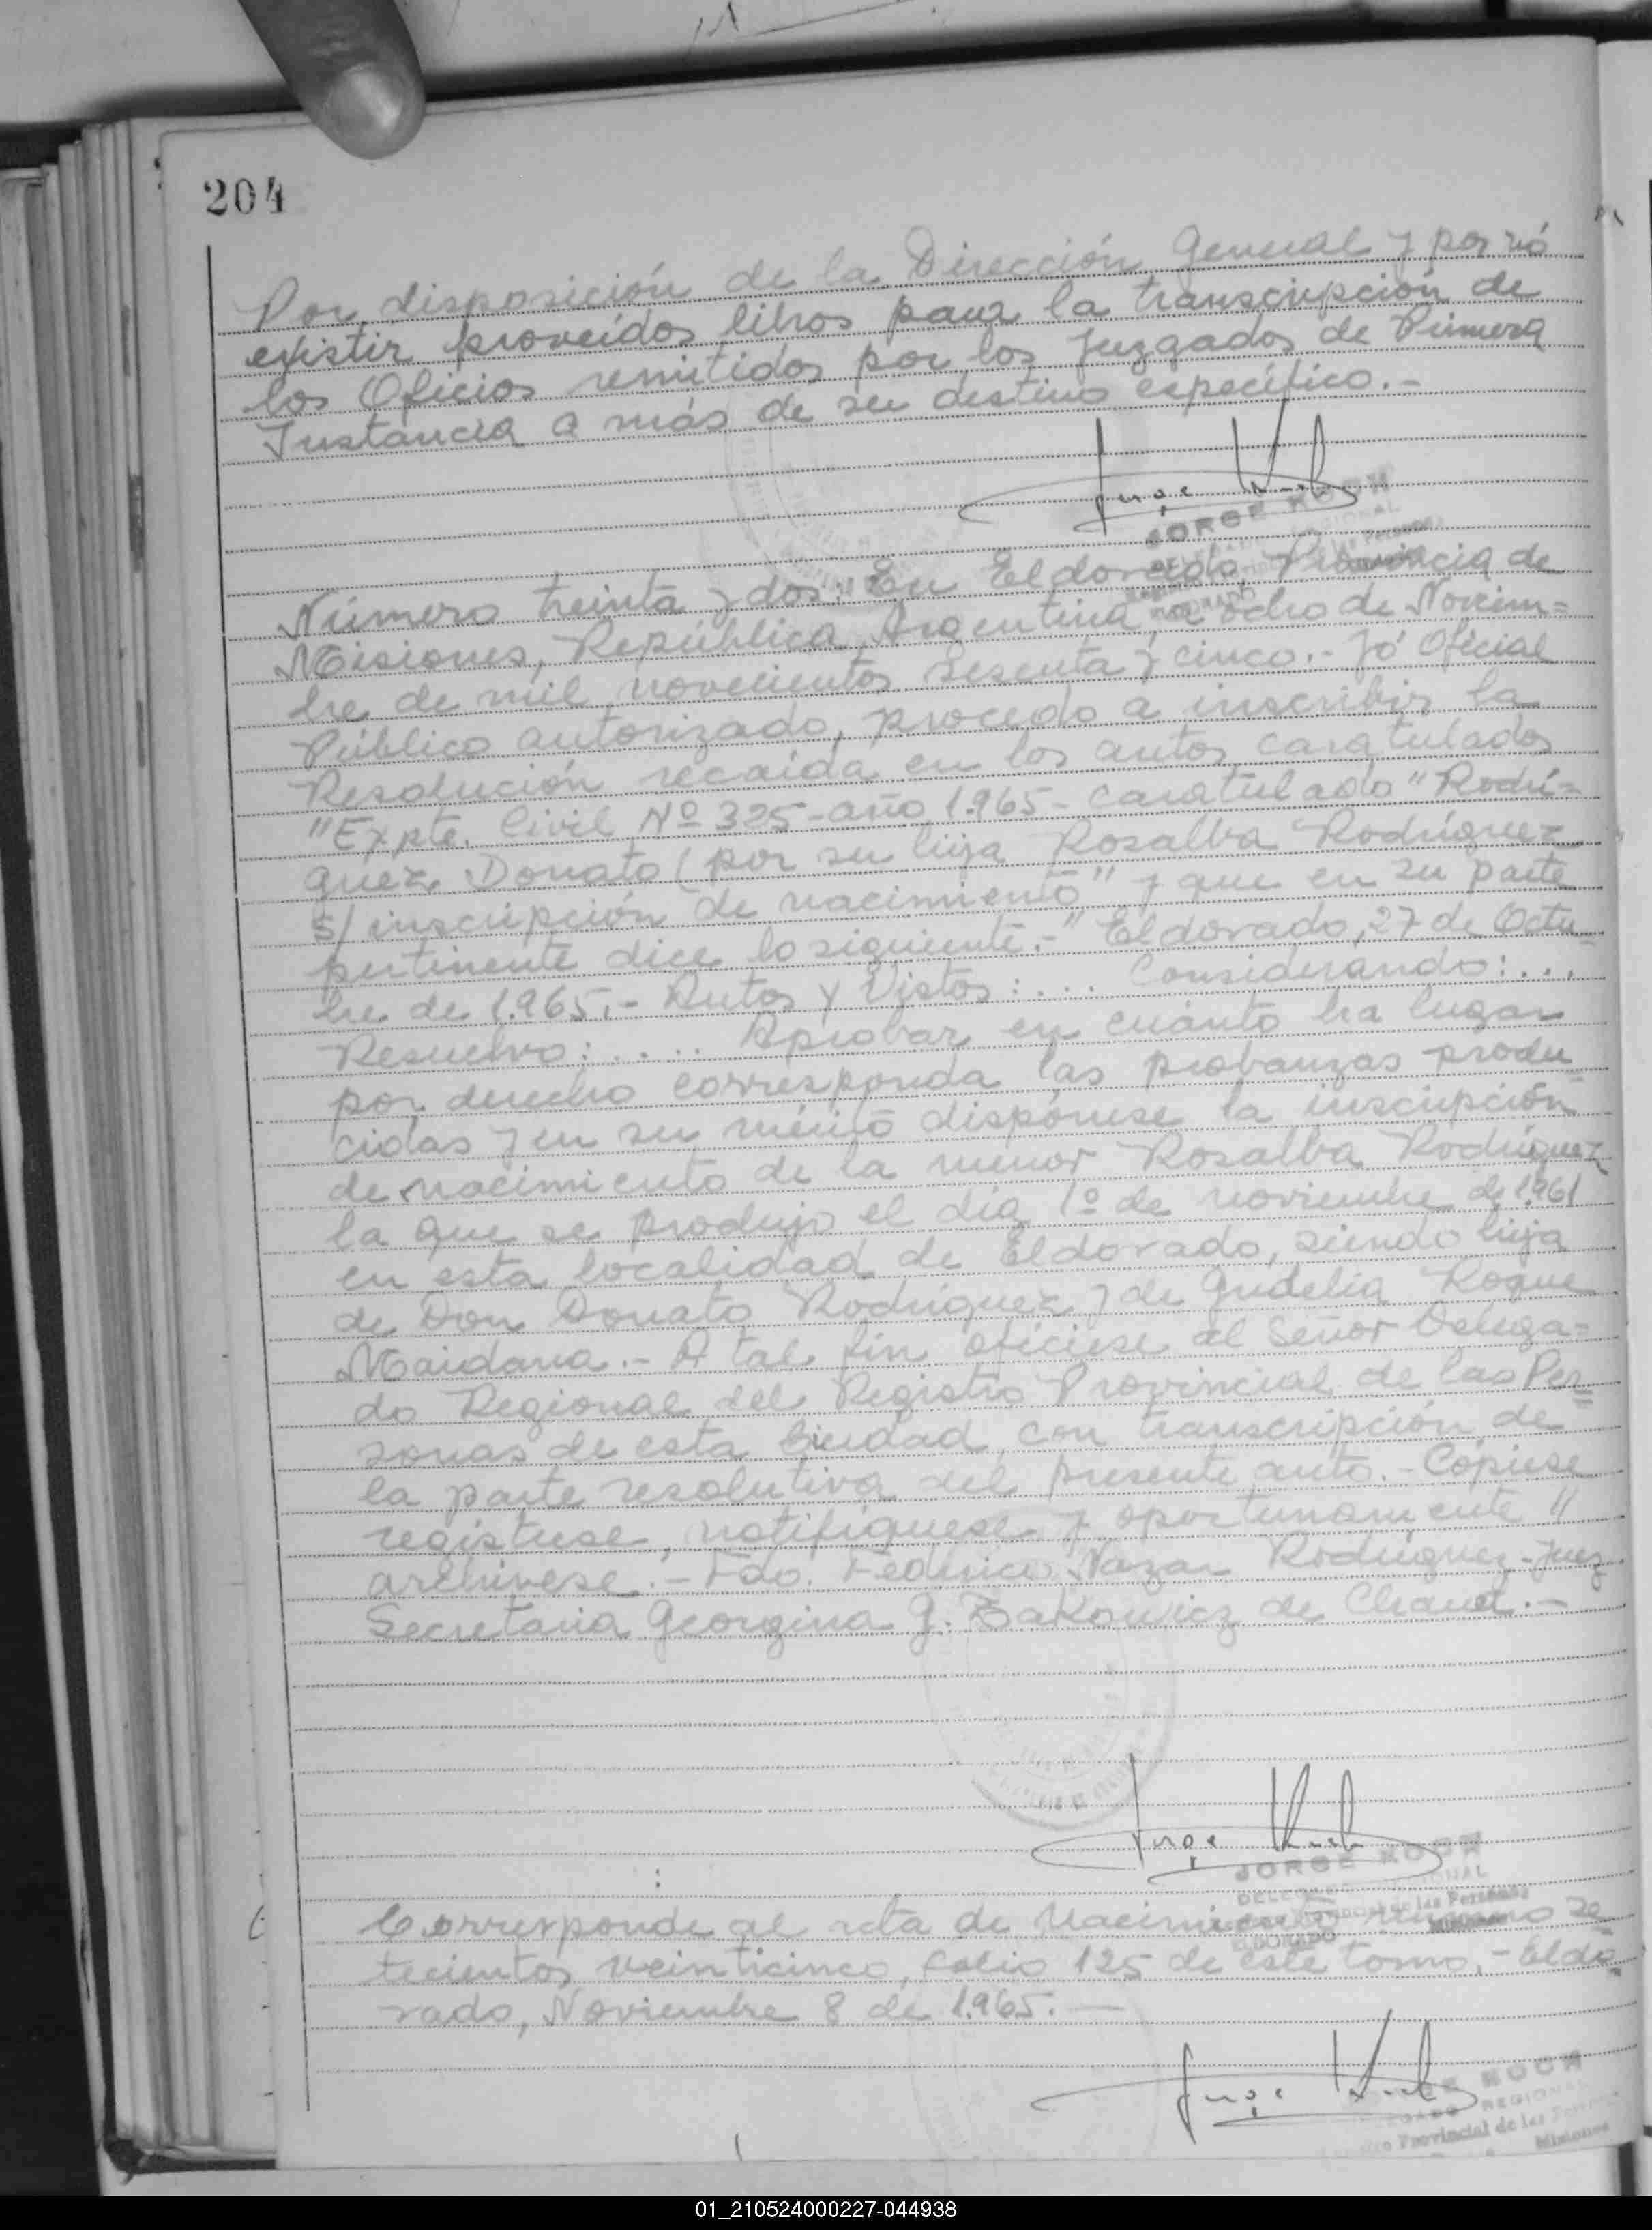 204
Por disposición de la Dirección General y por nó
existir proveídos libros para la transcripción de
los Oficios remitidos por los Juzgados de Primera
Instancia a más de su destino específico.-
Jorge Koch
JORGE KOCH
Número treinta y dos: En Eldorado, Provincia de
Misiones, República Argentina, a ocho de Noviem=
bre de mil novecientos sesenta y cinco.- Yó Oficial
Público autorizado, procedo a inscribir la
Resolución recaída en los autos caratulados
"Expte. Civil Nº 325-año 1.965- caratulado "Rodrí=
guez Donato (por su hija Rosalba Rodríguez
S/ inscripción de nacimiento" y que en su parte
pertinente dice lo siguiente:- "Eldorado, 27 de Octu=
bre de 1.965.- Autos y Vistos: .... Considerando: ...
Resuelvo: ..... Aprobar en cuánto ha lugar
por derecho corresponda las probanzas produ=
cidas y en su mérito dispónese la inscripción
de nacimiento de la menor Rosalba Rodríguez
la que se produjo el día 1º de noviembre de 1.961
en esta localidad de Eldorado, siendo hija
de Don Donato Rodríguez y de Gudelia Roque
Maidana.- A tal fin ofíciese al Señor Delega=
do Regional del Registro Provincial de las Per=
sonas de esta Ciudad, con transcripción de
la parte resolutiva del presente auto.- Cópiese
regístrese, notifíquese y oportunamente "
archívese.- Fdo. Federico Nazar Rodríguez - Juez
Secretaria Georgina G. Zakowicz de Chanel.-
Jorge Koch
JORGE KOCH
DELEGADO REGIONAL
de las Personas
ELDORADO
Corresponde al acta de Nacimiento número se
tecientos veinticinco, folio 125 de este tomo.- Eldo=
rado, Noviembre 8 de 1.965.—
Jorge Koch
KOCH
REGIONAL
Provincial de las
Misiones
01_210524000227-044938